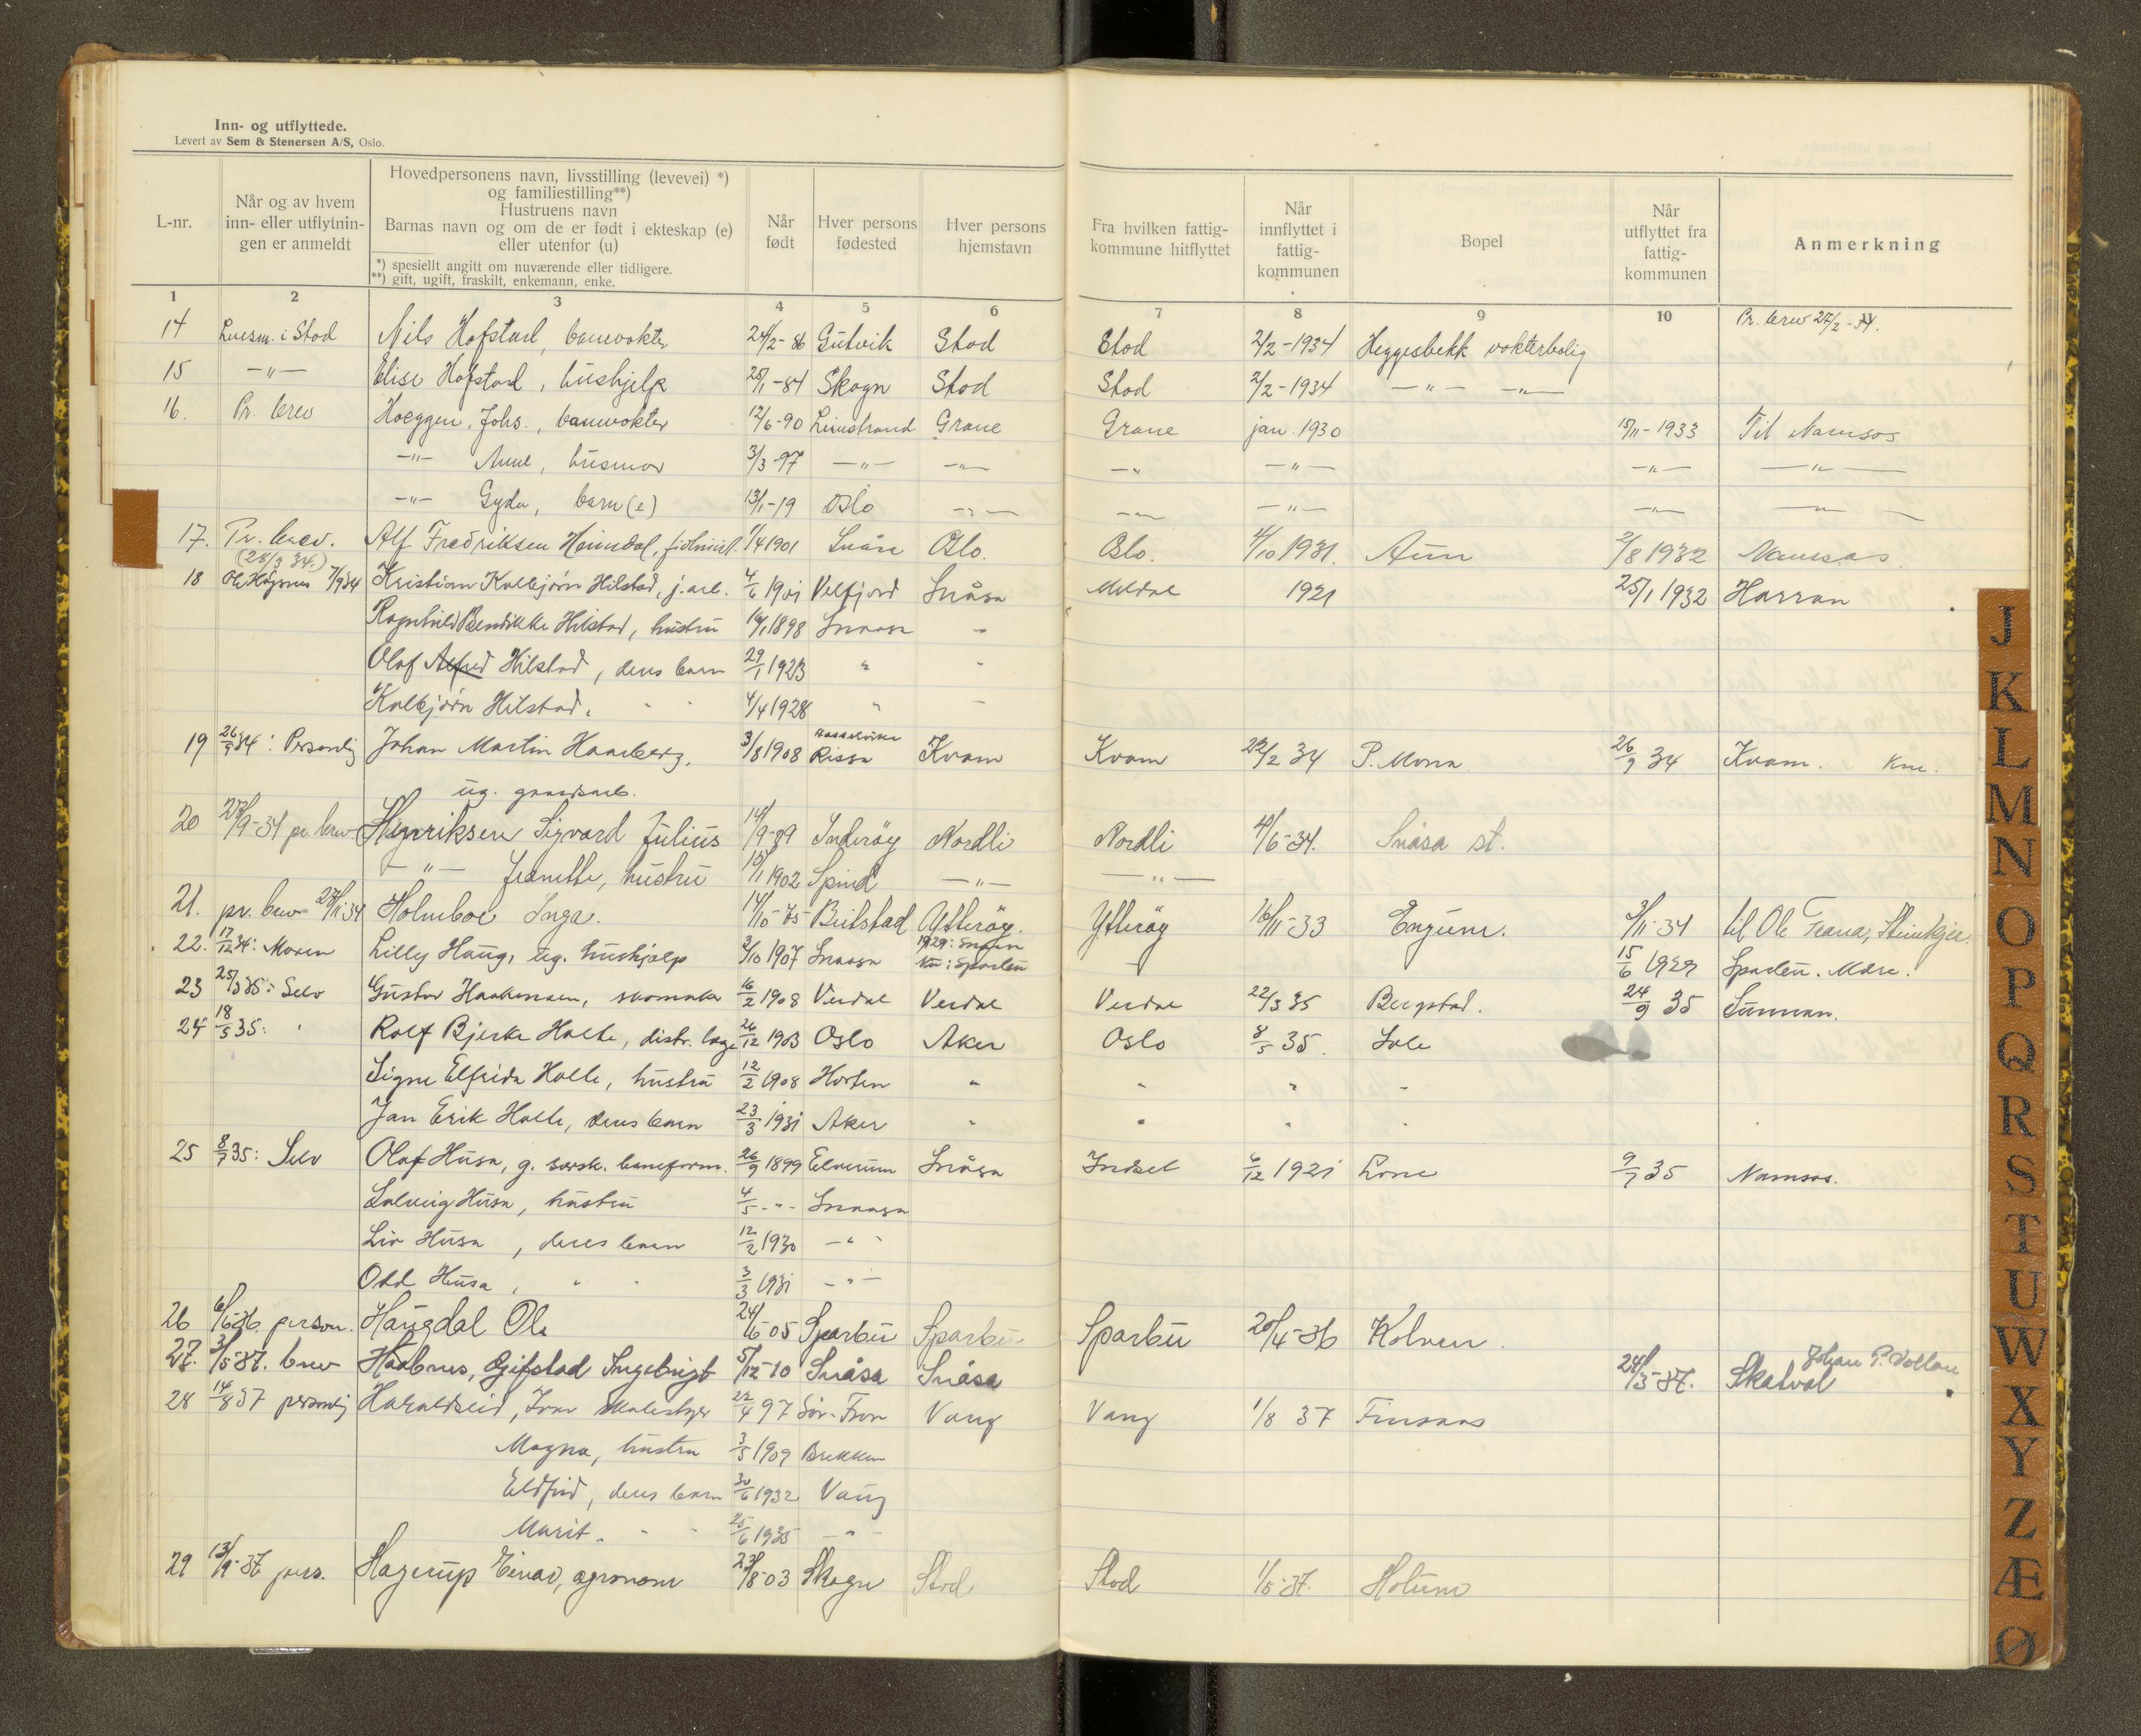 Inn- og utflyttede.
Levert av Sem & Stenersen A/S, Oslo.
L-nr.
Når og av hvem inn- eller utflytnin- gen er anmeldt
Hovedpersonens navn, livsstilling (levevei) *) og familiestilling**)
Hustruens navn
Barnas navn og om de er født i ekteskap (e) eller utenfor (u)
*) spesiellt angitt om nuværende eller tidligere.
**) gift, ugift, fraskilt, enkemann, enke.
Når født
Hver persons fødested
Hver persons hjemstavn
Fra hvilken fattig- kommune hitflyttet
Når innflyttet i fattig- kommunen
Bopel
Når utflyttet fra fattig- kommunen
Anmerkning
1 2 3 4 5 6 7 8 9 10
Pr. brev 27/2-34.
14 Lensm. i Stod Nils Hofstad, banevokter 24/2-86 Gutvik Stod Stod 2/2-1934 Heggesbekk vokterbolig
15 -"- Elise Hofstad, hushjelp 25/1-84 Skogn Stod Stod 2/2-1934 -"- -"-
16. Pr. brev Hoeggen, Johs., banevokter 12/6-90 Leinstrand Grane Grane jan. 1930 15/11-1933 Til Namsos
-"- Anne, husmor 3/3-97 -"- -"- -"- -"- -"- -"-
-"- Gyda, barn (e) 13/1-19 Oslo -"- -"- -"- -"- -"-
17. Pr. brev. Alf Fredriksen Heimdal, 1/4 1901 Snåsa Oslo. Oslo. 4/10 1931. Aun 2/8 1932 Namsos.
(28/3 34.)
18 7/9 34 Kristian Kolbjørn Hilstad, j.arb. 4/6 1901 Velfjord Snåsa Meldal 1921 25/1 1932 Harran
Ragnhild Bendikke Hilstad, hustru 16/1 1898 Snaasa "
Olaf Alfred Hilstad, deres barn 29/1 1923 " "
Kolbjørn Hilstad, " " 4/4 1928 " "
19 26/9 34: Personlig Johan Martin Haarberg, 3/8 1908 Hasselvika Rissa Kvam Kvam 22/2 34 P. Mona 26/9 34 Kvam.
ug. gaardsarb.
20 27/9-34 pr. brev Henriksen Sigvard Julius 14/9-89 Inderøy Nordli Nordli 4/6-34. Snåsa st.
-"- Jeanette, hustru 15/1 1902 Spind -"- -"-
21. pr. brev 27/11 34 Holmboe Inga. 14/10-75 Beitstad Ytterøy. Ytterøy 16/11-33 Engum. 3/11-34 til Ole Trana, Steinkjer.
22. 17/12 34: Moren Lilly Haug, ug. hushjelp 2/10 1907 Snaasa 1929: Snåsa nu: Sparbu - 15/6 1929 Sparbu. Mære.
23 25/3 35: Selv Gustav Haakensen, skomaker 16/2 1908 Verdal Verdal Verdal 22/3 35 Bergstad. 24/9 35 Sunnan.
24 18/5 35: " Rolf Bjerke Holte, distr. læge 26/12 1903 Oslo Aker Oslo 8/5 35. Sole
Signe Elfrida Holte, hustru 12/2 1908 Horten " " " "
Jan Erik Holte, deres barn 23/3 1931 Aker " " " "
25 8/7 35: Selv Olaf Husa, g. baneform. 26/9 1899 Elverum Snåsa Indset 6/12 1921 Lone 9/7 35 Namsos.
Solveig Husa, hustru 4/5 -"- Snaasa
Liv Husa, deres barn 12/2 1930 -"-
Odd Husa, " " 3/3 1931 -"-
26 6/6-36. person. Haugdal Ole 24/6-05 Sparbu Sparbu Sparbu 20/4-36 Kolven.
27. 3/5-37. brev Haabnes, Gifstad Ingebrigt 5/12-10 Snåsa Snåsa 24/3-37. Skatval Johan P. Vollan
28 14/8 37 personlig Haraldseid, Ivar skolestyrer 22/4 97 Sør-Fron Vang Vang 1/8 37 Finsaas
Magna, hustru 3/5 1909 Brekken
Eldfrid, deres barn 30/6 1932 Vang
Marit " " 25/6 1935 -"-
29 13/9-37 pers. Hagerup Einar, agronom 23/8-03 Skogn Stod Stod 1/5-37. Holum
J
K
L
M
N
O
P
Q
R
S
T
U
W
X
Y
Z
Æ
Ø